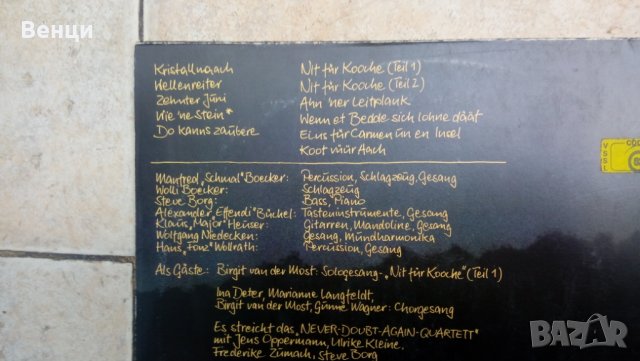 Венци
Kristallnaach
Wellenreiter
Zehnter Juni
Wie 'ne Stein*
Do kanns zaubere
Nit für Kooche (Teil 1)
Nit für Kooche (Teil 2)
Ahn 'ner Leitplank
Wenn et Bedde sich lohne däät
Eins für Carmen un en Insel
Koot vüür Aach
Manfred „Schmal" Boecker: Percussion, Schlagzeug, Gesang
Wolli Boecker: Schlagzeug
Steve Borg: Bass, Piano
Alexander „Effendi" Büchel: Tasteninstrumente, Gesang
Klaus „Major" Heuser: Gitarren, Mandoline, Gesang
Wolfgang Niedecken: Gesang, Mundharmonika
Hans „Fonz" Wollrath: Percussion, Gesang
Als Gäste: Birgit van der Most: Sologesang - „Nit für Kooche" (Teil 1)
Ina Deter, Marianne Langfeldt,
Birgit van der Most, Günne Wagner: Chorgesang
Es streicht das „NEVER-DOUBT-AGAIN-QUARTETT"
mit Jens Oppermann, Ulrike Kleine,
Frederike Zumach, Steve Borg
BAZAR